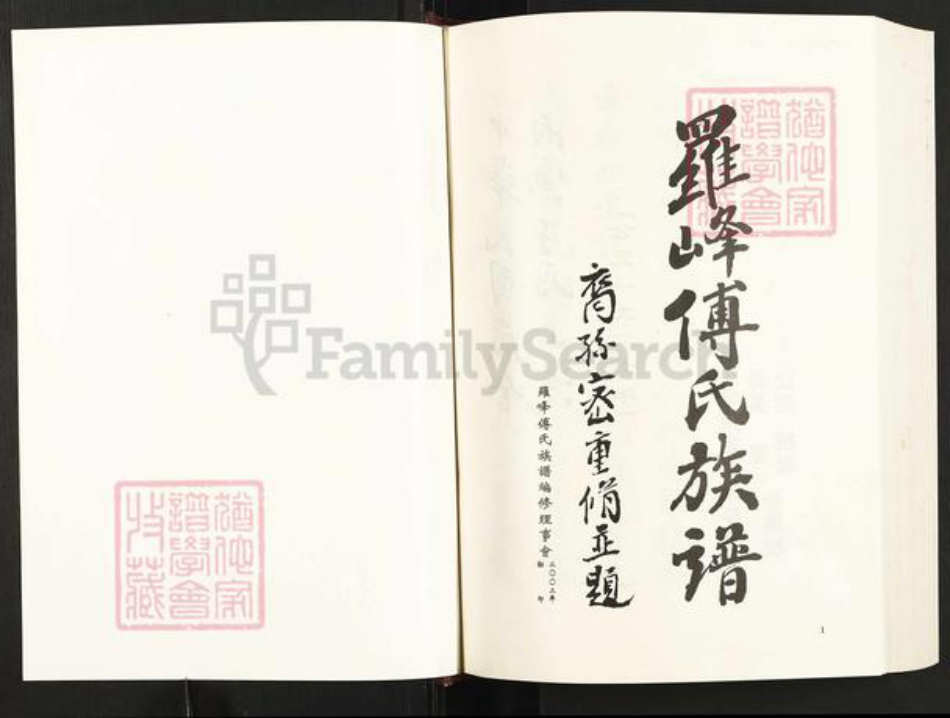 羅峰傅氏族譜
裔孫密重修並題
羅峰傅氏族譜編修理事會
二〇〇二年
印
猶他家
譜學會
收藏
猶他家
譜學會
收藏
FamilySearch
1